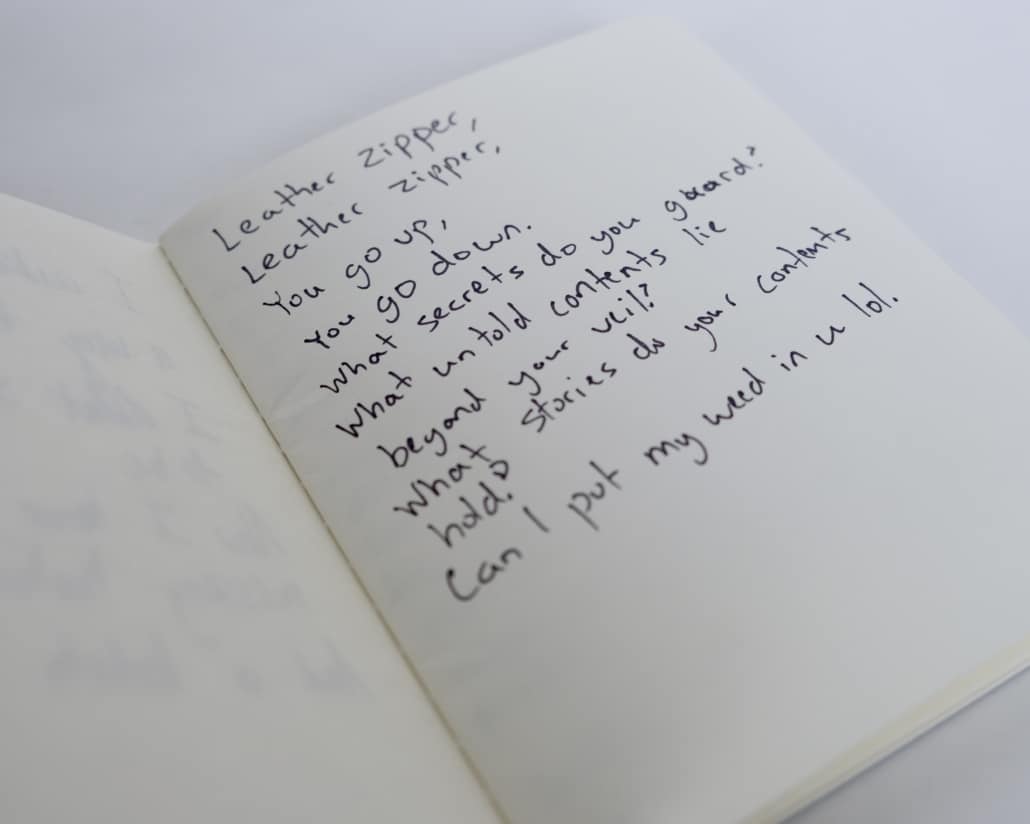 Leather zipper,
Leather zipper,
You go up,
You go down.
What secrets do you guard?
What untold contents lie
beyond your veil?
What stories do your contents
hold?
Can I put my weed in u lol.